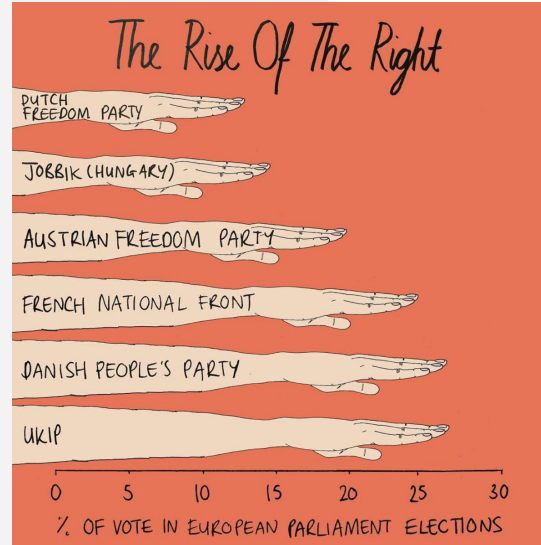 The Rise Of The Right
DUTCH
FREEDOM PARTY
JOBBIK (HUNGARY)
AUSTRIAN FREEDOM PARTY
FRENCH NATIONAL FRONT
DANISH PEOPLE'S PARTY
UKIP
0 5 10 15 20 25 30
% OF VOTE IN EUROPEAN PARLIAMENT ELECTIONS